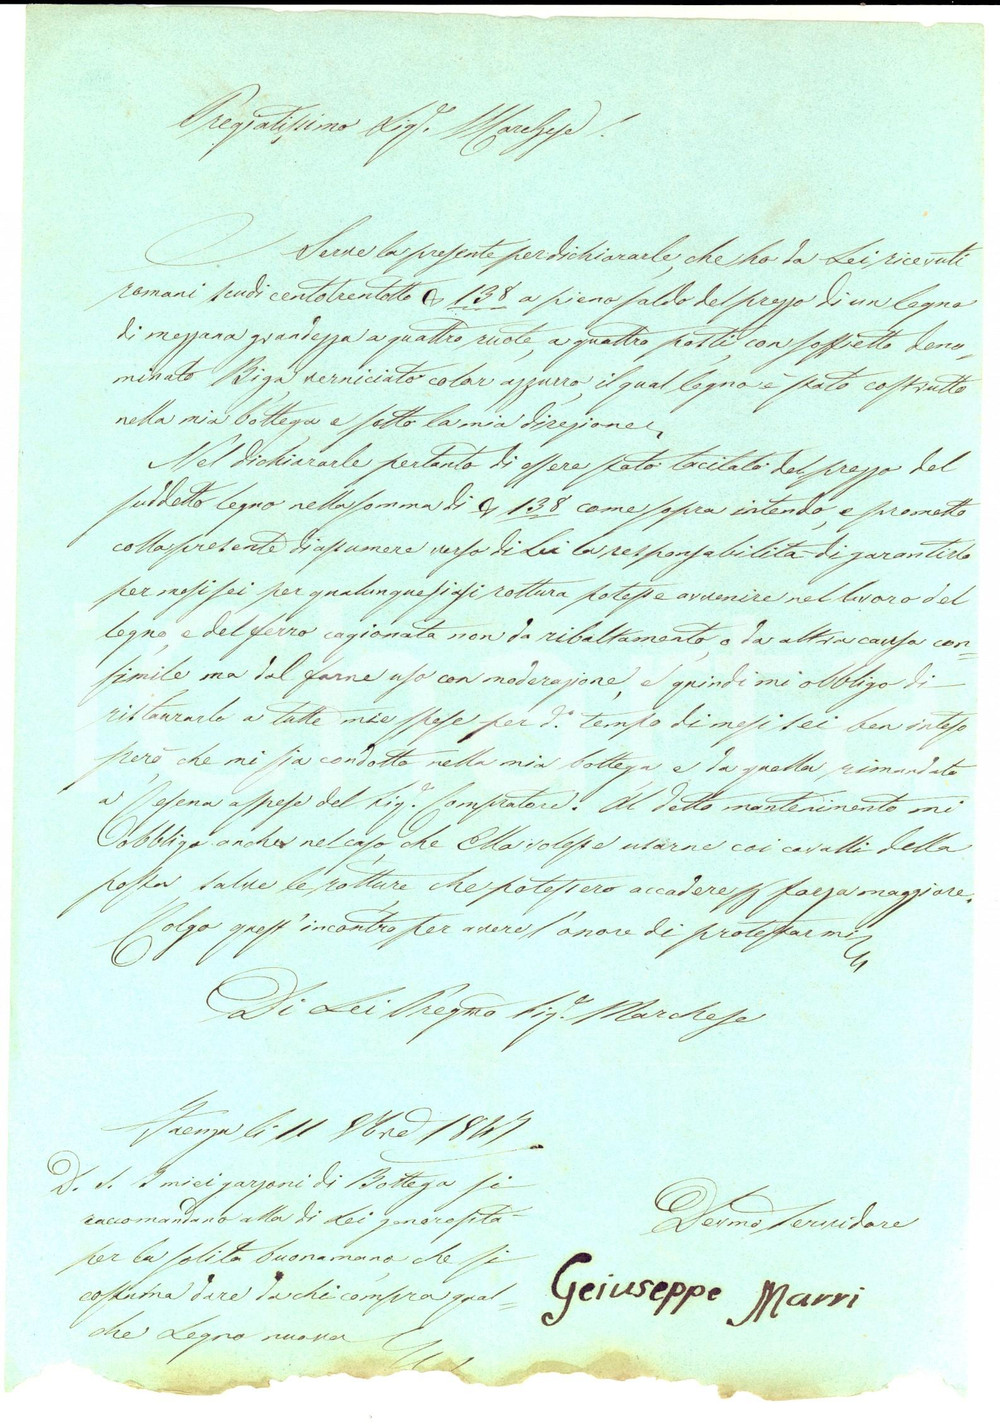 Pregiatissimo Sigr. Marchese!
Serve la presente per dichiararle, che ho da Lei ricevuti
romani scudi centotrentotto 138 a pieno saldo del prezzo di un legno
di mezzana grandezza a quattro ruote, a quattro posti, con soffietto deno,,
minato Biga, verniciato color azzurro, il qual legno è stato costrutto
nella mia bottega e sotto la mia direzione.
Nel dichiararle pertanto di essere stato tacitato del prezzo del
suddetto legno nella somma di 138 come sopra intendo, e prometto
colla presente di assumere verso di Lei la responsabilità di garantirlo
per mesi sei, per qualunque siasi rottura potesse avvenire nel lavoro del
legno, e del ferro cagionata non da ribaltamento, o da altra causa con=
simile ma dal farne uso con moderazione, e quindi mi obbligo di
ristaurarlo a tutte mie spese per do. tempo di mesi sei ben inteso
però che mi sia condotto nella mia bottega e da quella rimandato
a Cesena a spese del Sigr. Compratore. Al detto mantenimento mi
obbligo anche nel caso, che Ella volesse usarne coi cavalli della
posta salve le rotture che potessero accadere per forza maggiore.
Colgo quest'incontro per avere l'onore di protestarmi
Di Lei Pregmo Sigr. Marchese
Faenza li 11 8bre 1847
D. S. I miei garzoni di Bottega si
raccomandano alla di Lei generosità=
per la solita buonamano che si
costuma dare da chi compra qual=
che Legno nuovo
Devmo Servidore
Geiuseppe Marri